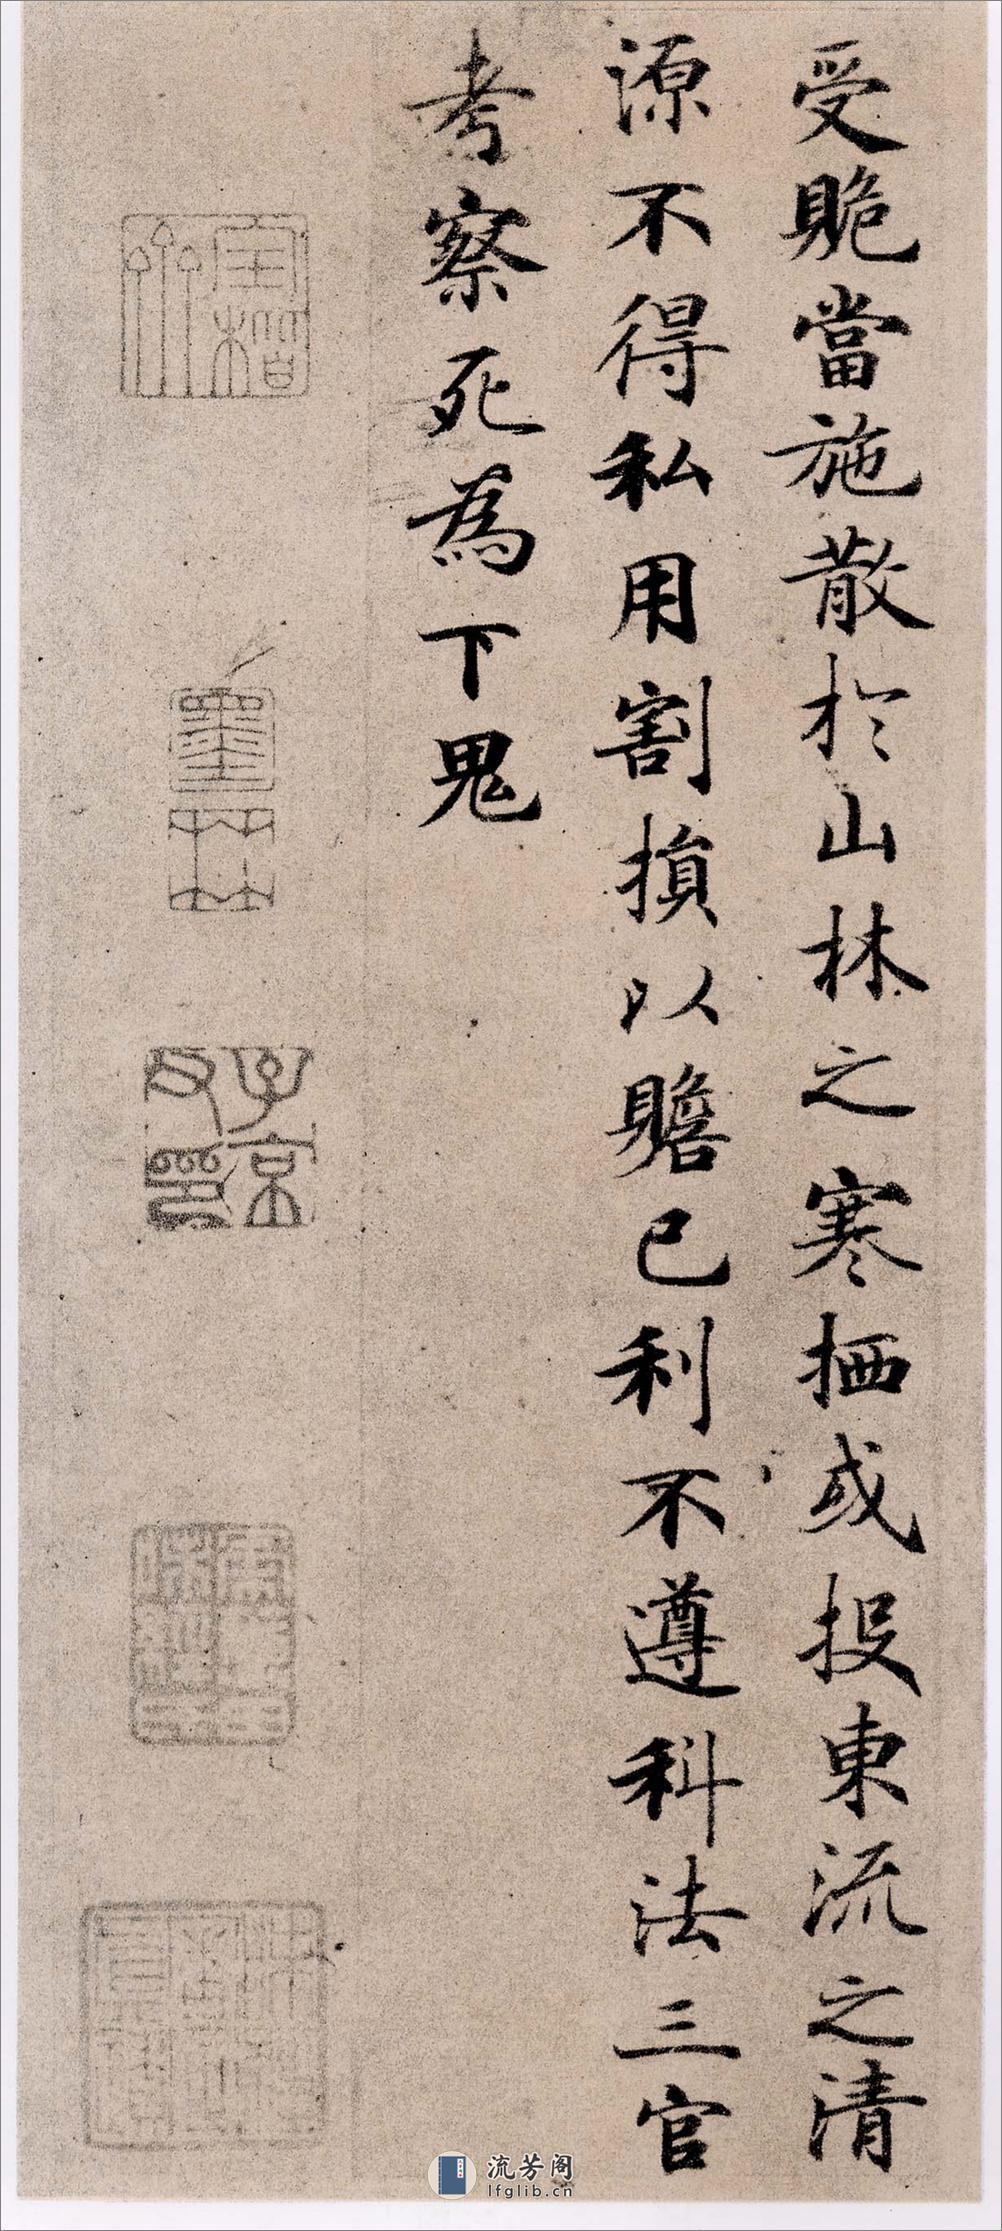 受贍當施散於山林之寒栖或投東流之清
源不得私用割損以贍己利不遵科法三官
考察死為下鬼
墨林
子京
父印
流芳阁
lfglib.cn